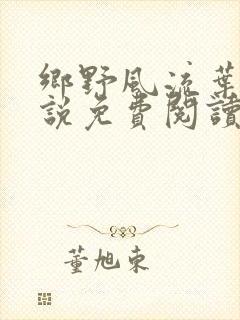 鄉野風流葉
說免費閱讀
董旭東